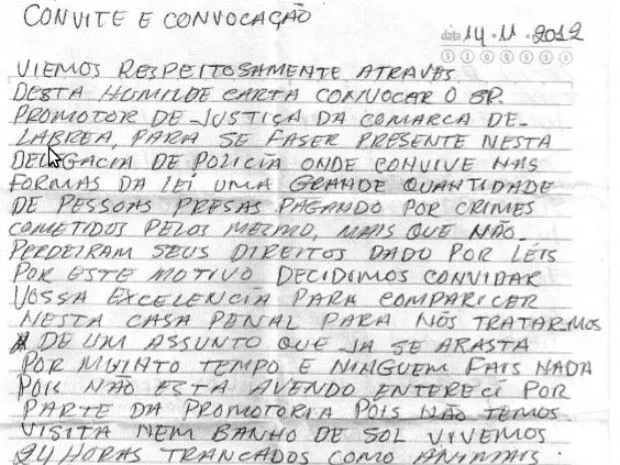 CONVITE E CONVOCAÇÃO
data 14 · 11 · 2012
D S T Q Q S S
VIEMOS RESPEITOSAMENTE ATRAVES
DESTA HUMILDE CARTA CONVOCAR O SR.
PROMOTOR DE JUSTIÇA DA COMARCA DE-
LABREA, PARA SE FASER PRESENTE NESTA
DELEGACIA DE POLICIA ONDE CONVIVE NAS
FORMAS DA LEI UMA GRANDE QUANTIDADE
DE PESSOAS PRESAS PAGANDO POR CRIMES
COMETIDOS PELOS MESMO, MAIS QUE NÃO
PERDEIRAM SEUS DIREITOS DADO POR LÉIS
POR ESTE MOTIVO DECIDIMOS CONVIDAR
VOSSA EXCELENCIA PARA COMPARICER
NESTA CASA PENAL PARA NÓS TRATARMOS
DE UM ASSUNTO QUE JA SE ARASTA
POR MUINTO TEMPO E NINGUEM FAIS NADA
POIS NÃO ESTA AVENDO ENTERECI POR
PARTE DA PROMOTORIA POIS NÃO TEMOS
VISITA NEM BANHO DE SOL VIVEMOS
24 HORAS TRANCADOS COMO ANIMAIS.